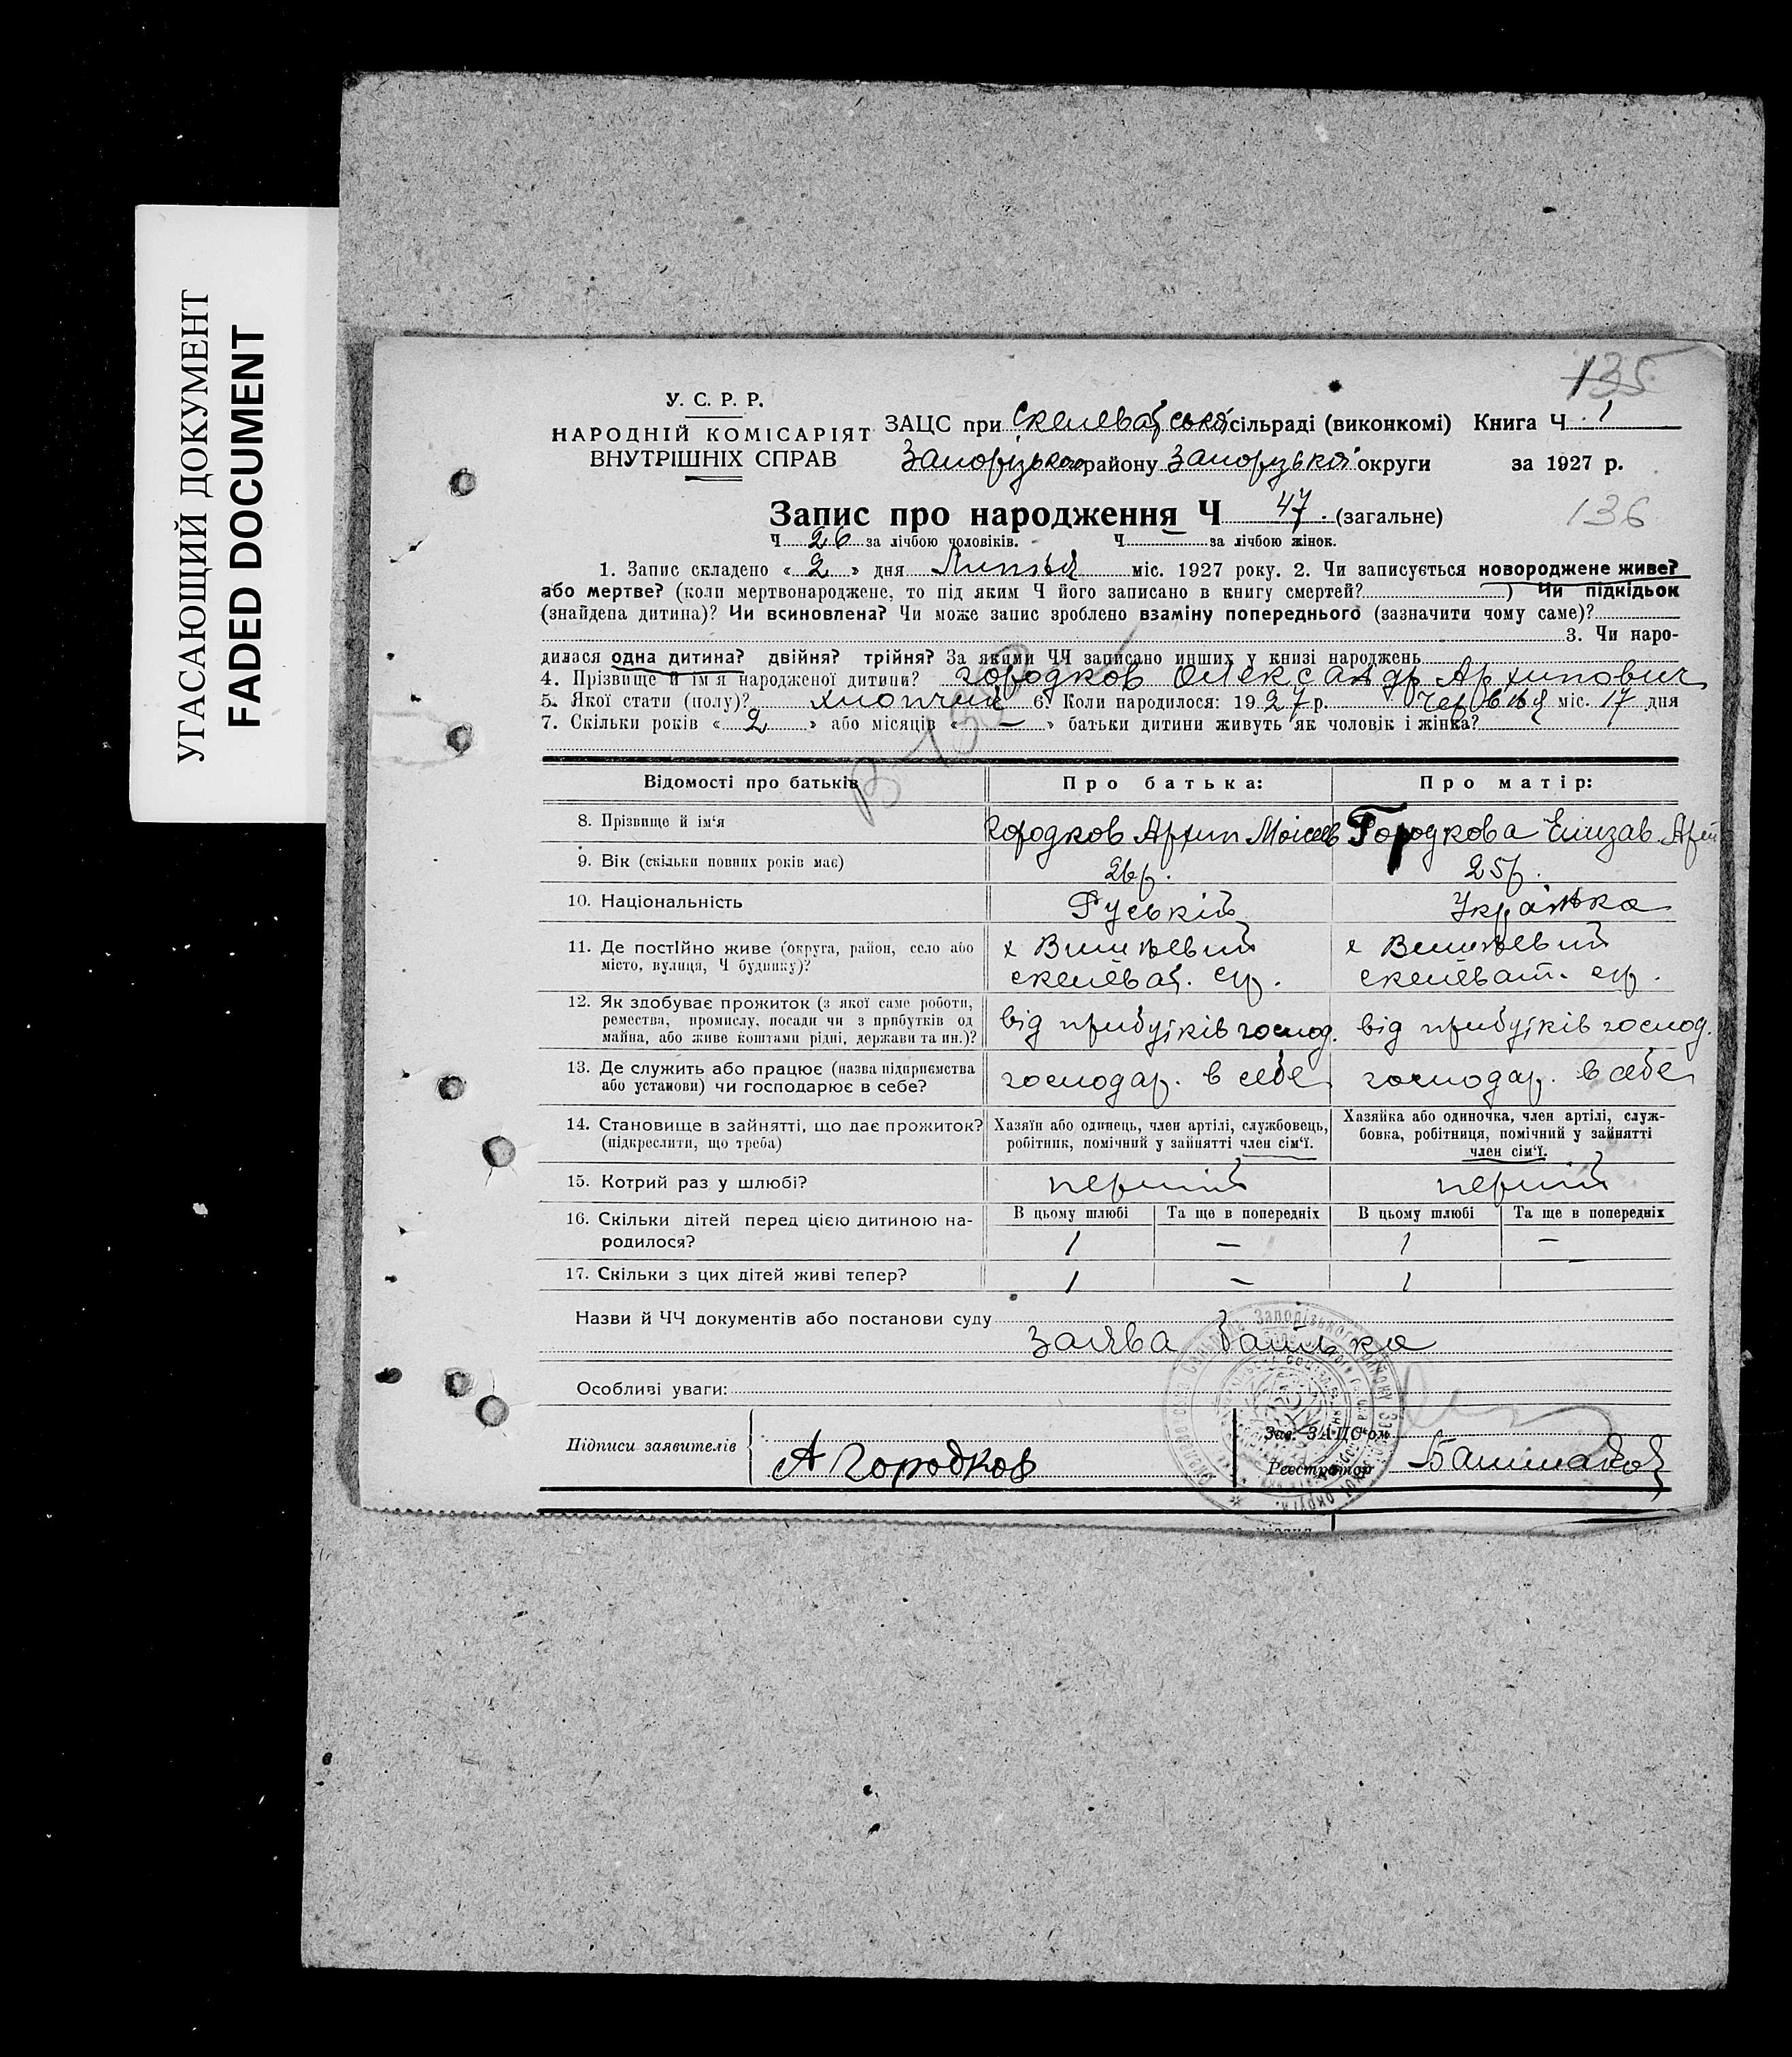 УГАСАЮЩИЙ ДОКУМЕНТ
FADED DOCUMENT
135
У. С. Р. Р.
НАРОДНІЙ КОМІСАРІЯТ
ВНУТРІШНІХ СПРАВ
ЗАЦС при Скелеватській сільраді (виконкомі) Книга Ч. 1
Запорізького району Запорізької округи за 1927 р.
Запис про народження Ч 47. (загальне)
136
Ч 26 за лічбою чоловіків. Ч за лічбою жінок.
1. Запис складено « 2 » дня Липня міс. 1927 року. 2. Чи записується новороджене живе?
або мертве? (коли мертвонароджене, то під яким Ч його записано в книгу смертей? ) Чи підкідьок
(знайдена дитина)? Чи всиновлена? Чи може запис зроблено взаміну попереднього (зазначити чому саме)?
3. Чи наро-
дилася одна дитина? двійня? трійня? За якими ЧЧ записано инших у книзі народжень
4. Прізвище й ім'я народженої дитини? Городков Олександр Архипович
5. Якої стати (полу)? хлопчик 6. Коли народилося: 1927 р. Червня міс. 17 дня
7. Скільки років « 2 » або місяців « — » батьки дитини живуть як чоловік і жінка?
Відомості про батьків Про батька: Про матір:
8. Прізвище й ім'я Городков Архип Моісеєв Городкова Єлизав.
9. Вік (скільки повних років має) 26 р. 25 р.
10. Національність Руській Українка
11. Де постійно живе (округа, район, село або х Вишневий х Вишневий
місто, вулиця, Ч будинку)? скелеват. ср. скелеват. ср.
12. Як здобуває прожиток (з якої саме роботи,
ремества, промислу, посади чи з прибутків од від прибутків господ. від прибутків господ.
майна, або живе коштами рідні, держави та ин.)?
13. Де служить або працює (назва підприємства
або установи) чи господарює в себе? господар. в себе господар. в себе
14. Становище в зайнятті, що дає прожиток? Хазяїн або одинець, член артілі, службовець, Хазяйка або одиночка, член артілі, служ-
(підкреслити, що треба) робітник, помічний у зайнятті член сім'ї. бовка, робітниця, помічний у зайнятті
член сім'ї.
15. Котрий раз у шлюбі? перший перший
16. Скільки дітей перед цією дитиною на- В цьому шлюбі Та ще в попередніх В цьому шлюбі Та ще в попередніх
родилося? 1 — 1 —
17. Скільки з цих дітей живі тепер? 1 — 1
Назви й ЧЧ документів або постанови суду
заява батька
Особливі уваги:
Зав. ЗАЦС'ом
Підписи заявителів А Городков Реєстратор Башмаков